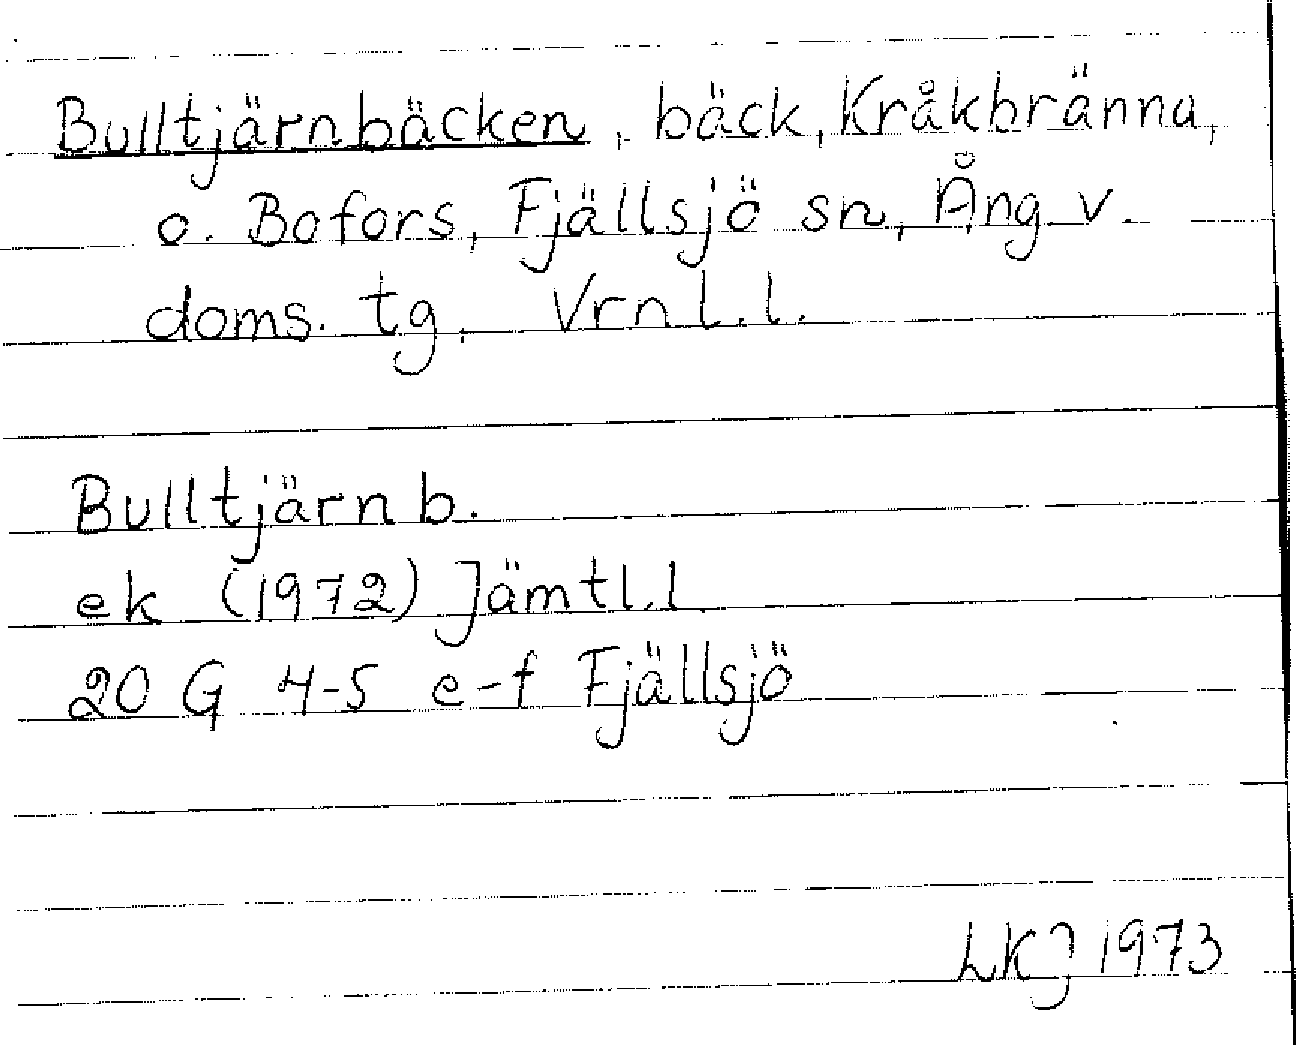 Bulltjärnbäcken, bäck, Kråkbränna,
o. Bofors, Fjällsjö sn, Ång. v.
doms. tg, Vrnl. l.
Bulltjärn b.
ek (1972) Jämtl. l
20 G 4-5 e-f Fjällsjö
LKJ 1973